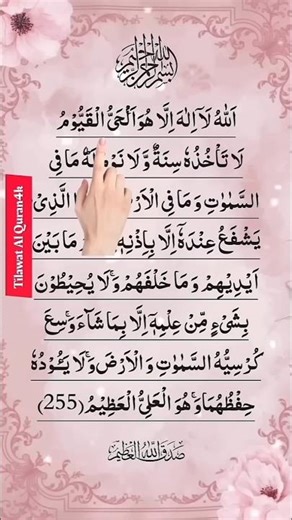 بسم الله الرحمن الرحيم
اَللّٰهُ لَاۤ اِلٰهَ اِلَّا هُوَ اَلْحَیُّ الْقَیُّوْمُ
لَا تَاْخُذُهٗ سِنَةٌ وَّلَا نَوْمٌ لَهٗ مَا فِی
السَّمٰوٰتِ وَمَا فِی الْاَرْضِ الَّذِیْ
یَشْفَعُ عِنْدَهٗۤ اِلَّا بِاِذْنِهٖ مَا بَیْنَ
اَیْدِیْهِمْ وَمَا خَلْفَهُمْ وَلَا یُحِیْطُوْنَ
بِشَیْءٍ مِّنْ عِلْمِهٖۤ اِلَّا بِمَا شَآءَ وَسِعَ
كُرْسِیُّهُ السَّمٰوٰتِ وَالْاَرْضَ وَلَا یَـُٔوْدُهٗ
حِفْظُهُمَا وَهُوَ الْعَلِیُّ الْعَظِیْمُ (255)
صدق الله العظيم
Tilawat Al Quran4k